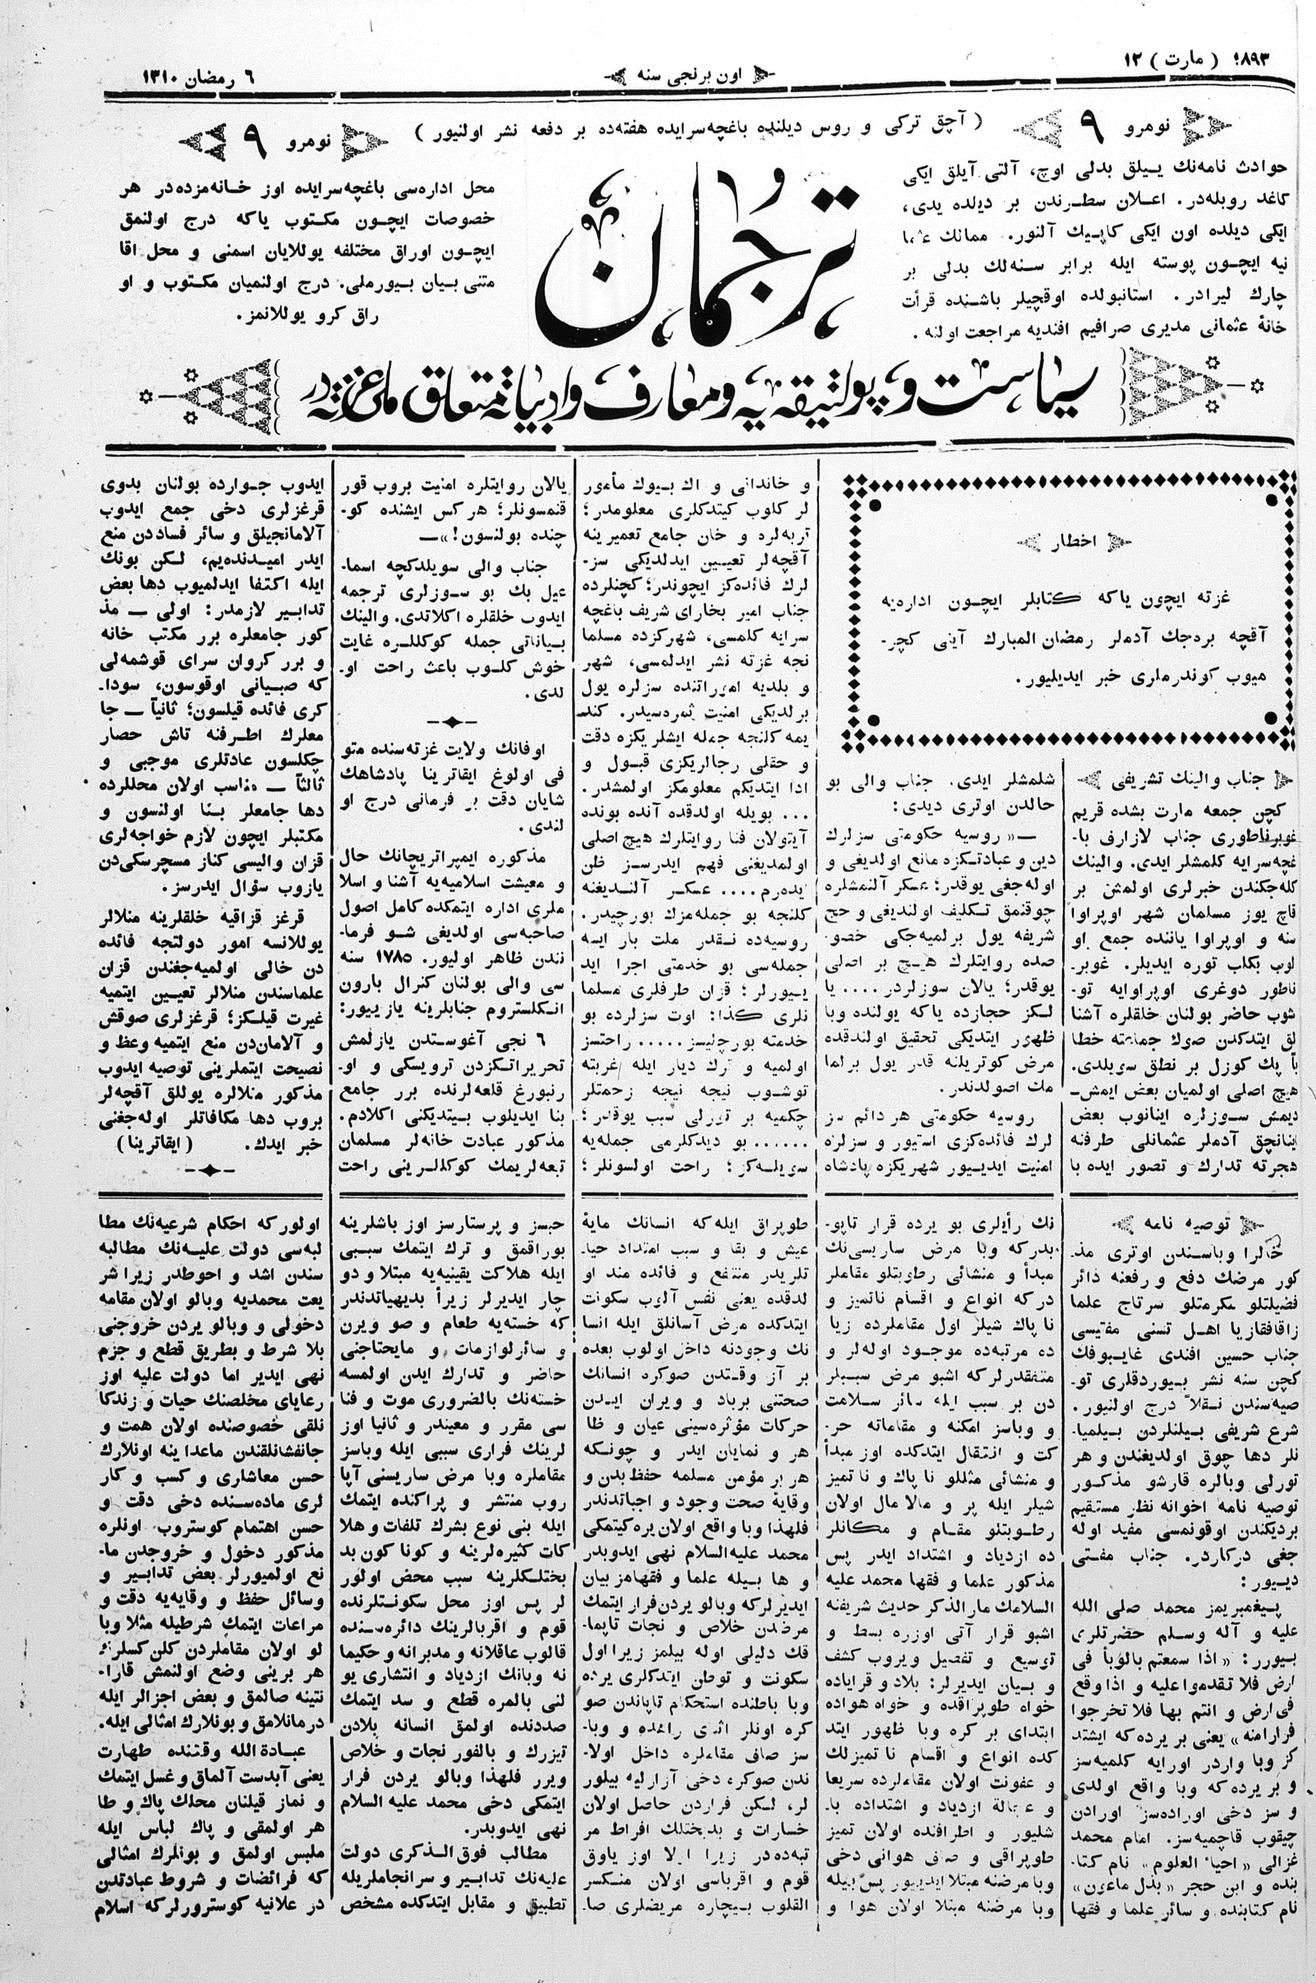 ١٨٩٣ ( مارت ) ١٢
اون برنجی سنه
٦ رمضان ١٣١٠
نومرو ٩
( آچق تركی و روس ديلنده باغچه‌سرايده هفته‌ده بر دفعه نشر اولنيور )
نومرو ٩
حوادث نامه‌نك ييلق بدلی اوچ، آلتی آيلق ايكی
كاغد روبله‌در. اعلان سطرندن بر ديلده يدی،
ايكی ديلده اون ايكی كاپيك آلنور. ممالك عثما
نيه ايچون پوسته ايله برابر سنه‌لك بدلی بر
چارك ليرادر. استانبولده اوقچيلر باشنده قرأت
خانهٔ عثمانی مديری صرافيم افنديه مراجعت اولنه.
ترجمان
محل اداره‌سی باغچه‌سرايده اوز خانه‌مزده‌در هر
خصوصات ايچون مكتوب ياكه درج اولنمق
ايچون اوراق مختلفه يوللايان اسمنی و محل اقا
متنی بيان بيورملی. درج اولنميان مكتوب و او
راق كرو يوللانمز.
سياست و پولتيقه‌يه و معارف و ادبياته متعلق ملی غزته‌در
اخطار
غزته ايچون ياكه كتابلر ايچون اداره‌يه
آقچه بره‌جك آدملر رمضان المبارك آينی كچر-
ميوب كوندرملری خبر ايديليور.
جناب والينك تشريفی
كچن جمعه مارت بشده قريم
غوبرناطوری جناب لازارف با-
غچه‌سرايه كلمشلر ايدی. والينك
كله‌جكندن خبرلری اولمش بر
قاچ يوز مسلمان شهر اوپراوا
سنه و اوپراوا ياننده جمع او
لوب بكلب توره ايديلر. غوبر-
ناطور دوغری اوپراوايه تو-
شوب حاضر بولنان خلقلره آشنا
لق ايتدكدن صوك جماعته خطا
با پك كوزل بر نطق سويلدی.
هيچ اصلی اولميان بعض ايمش-
ديمش سوزلره اينانوب بعض
اينانچق آدملر عثمانلی طرفنه
هجرته تدارك و تصور ايده با
شلمشلر ايدی. جناب والی بو
حالدن اوتری ديدی:
—« روسيه حكومتی سزلرك
دين و عبادتكزه مانع اولديغی و
اوله‌جغی يوقدر؛ عسكر آلنمشلره
چوقنمق تكليف اولنديغی و حج
شريفه يول برلميه‌جكی خصو-
صده روايتلرك هيچ بر اصلی
يوقدر؛ يالان سوزلردر.... يا
لكز حجازده ياكه يولنده وبا
ظهور ايتديكی تحقيق اولندقده
مرض كوتريلنه قدر يول برلما
مق اصولدندر.
روسيه حكومتی هر دائم سز
لرك فائده‌كزی استيور و سزلره
امنيت ايدييور شهريكزه پادشاه
و خاندانی و اك بيوك مأمور
لر كلوب كيتدكلری معلومدر؛
تربه‌لره و خان جامع تعميرينه
آقچه‌لر تعيين ايدلديكی سز-
لرك فائده‌كز ايچوندر؛ كچنلرده
جناب امير بخارای شريف باغچه
سرايه كلمسی، شهركزده مسلما
نجه غزته نشر ايدلمسی، شهر
و بلديه اموراتنده سزلره يول
برلديكی امنيت ثمره‌سيدر. كند-
يمه كلنجه جمله ايشلريكزه دقت
و حقلی رجالريكزی قبول و
ادا ايتديكم معلومكز اولمشدر.
... بويله اولدقده آنده بونده
آيتولان فنا روايتلرك هيچ اصلی
اولمديغنی فهم ايدرسز ظن
ايده‌رم.... عسكر آلنديغنه
كلنجه بو جمله‌مزك بورجيدر.
روسيه‌ده نقدر ملت بار ايسه
جمله‌سی بو خدمتی اجرا ايد
ييورلر؛ قزان طرفلری مسلما
نلری كذا: اوت سزلرده بو
خدمته بورچليسز..... راحتسز
اولميه و ترك ديار ايله غربته
توشوب نيجه نيجه زحمتلر
چكميه بر تورلی سبب يوقدر؛
...... بو ديدكلرمی جمله‌يه
سويله‌كز؛ راحت اولسونلر؛
يالان روايتلره امنيت بروب قور
قنمسونلر؛ هر كس ايشنده كو-
چنده بولنسون!»—
جناب والی سويلدكچه اسما-
عيل بك بو سوزلری ترجمه
ايدوب خلقلره اكلاتدی. والينك
بياناتی جمله كوكللره غايت
خوش كلوب باعث راحت او-
لدی.
اوفانك ولايت غزته‌سنده متو
فی اولوغ ايقاترينا پادشاهك
شايان دقت بر فرمانی درج او
لندی.
مذكوره ايمپراتريچانك حال
و معيشت اسلاميه‌يه آشنا و اسلا
ملری اداره ايتمكده كامل اصول
صاحبه‌سی اولديغی شو فرما-
نندن ظاهر اوليور. ١٧٨٥ سنه
سی والی بولنان كنرال بارون
انكلستروم جنابلرينه يازييور:
٦ نجی آغوستدن يازلمش
تحريراتكزدن ترويسكی و او-
رنبورغ قلعه‌لرنده برر جامع
بنا ايديلوب بيتديكنی اكلادم.
مذكور عبادت خانه‌لر مسلمان
تبعه‌لريمك كوكللرينی راحت
ايدوب جوارده بولنان بدوی
قرغزلری دخی جمع ايدوب
آلامانجيلق و سائر فساددن منع
ايدر اميدنده‌يم، لكن بونك
ايله اكتفا ايدلميوب دها بعض
تدابير لازمدر: اولی — مذ
كور جامعلره برر مكتب خانه
و برر كروان سرای قوشمه‌لی
كه صبيانی اوقوسون، سودا-
كری فائده قيلسون؛ ثانياً — جا
معلرك اطرفنه تاش حصار
چكلسون عادتلری موجبی و
ثالثاً — مناسب اولان محللرده
دها جامعلر بنا اولنسون و
مكتبلر ايچون لازم خواجه‌لری
قزان واليسی كناز مسچرسكی‌دن
يازوب سؤال ايدرسز.
قرغز قزاقيه خلقلرينه منلالر
يوللانسه امور دولتجه فائده
دن خالی اولميه‌جغندن قزان
علماسندن منلالر تعيين ايتميه
غيرت قيلكز؛ قرغزلری صوقش
و آلامان‌دن منع ايتميه وعظ و
نصيحت ايتملرينی توصيه ايدوب
مذكور منلالره يوللق آقچه‌لر
بروب دها مكافاتلر اوله‌جغنی
خبر ايدك. ( ايقاترينا )
توصيه نامه
خالرا وباسندن اوتری مذ-
كور مرضك دفع و رفعنه دائر
فضيلتلو مكرمتلو سرتاج علما
زاقافقازيا اهل تسنی مفتيسی
جناب حسين افندی غايبوفك
كچن سنه نشر بيوردقلری تو-
صيه‌سندن نقلاً درج اولنيور.
شرع شريفی بيلنلردن بيلميا-
نلر دها چوق اولديغندن و هر
تورلی وبالره قارشو مذكور
توصيه نامه اخوانه نظر مستقيم
برديكندن اوقونمسی مفيد اوله
جغی دركاردر. جناب مفتی
ديور:
پيغمبريمز محمد صلی الله
عليه و آله وسلم حضرتلری
بيورر: « اذا سمعتم بالوبأ فی
ارض فلا تقدموا عليه و اذا وقع
فی ارض و انتم بها فلا تخرجوا
فرارامنه » يعنی بر يرده كه ايشتد
كز وبا واردر اورايه كلميه‌سز
و بر يرده كه وبا واقع اولدی
و سز دخی اوراده‌سز اورادن
چيقوب قاچميه‌سز. امام محمد
غزالی « احيأ العلوم » نام كتا-
بنده و ابن حجر « بذل ماعون »
نام كتابنده و سائر علما و فقها
نك رأيلری بو يرده قرار تاپو-
بدركه وبا مرض ساريسی‌نك
مبدأ و منشائی رطوبتلو مقاملر
دركه انواع و اقسام ناتميز و
نا پاك شيلر اول مقاملرده زيا
ده مرتبه‌ده موجود اوله‌لر و
متفقدرلركه اشبو مرض سببلر
دن بر سبب ايله سائر سلامت
و وباسز امكنه و مقاماته حر-
كت و انتقال ايتدكده اوز مبدأ
و منشائی مثللو نا پاك و نا تميز
شيلر ايله پر و مالا مال اولان
رطوبتلو مقام و مكانلر
ده ازدياد و اشتداد ايدر پس
مذكور علما و فقها محمد عليه
السلامك مار الذكر حديث شريفنه
اشبو قرار آتی اوزره بسط و
توسيع و تفصيل ويروب كشف
و بيان ايديرلر: بلاد و قراياده
خواه طوپراقده و خواه هواده
ابتدای بر كره وبا ظهور ايتد
كده انواع و اقسام نا تميزلك
و عفونت اولان مقاملرده سريعا
و عجالة ازدياد و اشتداده با-
شليور و اطرافنده اولان تميز
طوپراقی و صاف هوانی دخی
وبا مرضنه مبتلا ايدييور پس بيله
وبا مرضنه مبتلا اولان هوا و
طوپراق ايله كه انسانك مايهٔ
عيش و بقا و سبب امتداد حيا-
تلريدر منتفع و فائده مند او
لدقده يعنی نفس آلوب سكونت
ايتدكده مرض آسانلق ايله انسا
نك وجودنه داخل اولوب بعده
بر آز وقتدن صوكره انسانك
صحتنی برباد و ويران ايدن
حركات مؤثره‌سينی عيان و ظا
هر و نمايان ايدر و چونكه
هر بر مؤمن مسلمه حفظ بدن و
وقايهٔ صحت وجود و اجباتدندر
فلهذا وبا واقع اولان يره كيتمكی
محمد عليه‌السلام نهی ايدوبدر
و ها بيله علما و فقهامز بيان
ايديرلركه وبالو يردن فرار ايتمك
مرضدن خلاص و نجات تاپما-
قك دليلی اوله بيلمز زيرا اول
سكونت و توطن ايتدكلری يرده
وبا باطنده استحكام تاپاندن صو
كره اونلر اثنای راهده و وبا-
سز صافی مقاملره داخل اولا-
ندن صوكره دخی آزارليه بيلور
لر، لكن فراردن حاصل اولان
خسارات و بدبختلك افراط مر
تبه‌ده‌در زيرا اولا اوز ياوق
قوم و اقرباسی اولان منكسر
القلوب بيچاره مريضلری صا-
حبسز و پرستارسز اوز باشلرينه
بوراقمق و ترك ايتمك سببی
ايله هلاكت يقينيه‌يه مبتلا و دو
چار ايديرلر زيرأ بديهياتدندر
كه خسته‌يه طعام و صو ويرن
و سائرلوازمات و مايحتاجنی
حاضر و تدارك ايدن اولمسه
خسته‌نك بالضروری موت و فنا
سی مقرر و معيندر و ثانيا اوز
لرينك فراری سببی ايله وباسز
مقاملره وبا مرض ساريسنی آپا
روب منتشر و پراكنده ايتمك
ايله بنی نوع بشرك تلفات و هلا
كات كثيره‌لرينه و كونا كون بد
بختلكلرينه سبب محض اولور
لر پس اوز محل سكونتلرنده
قوم و اقربالرينك دائره‌سنده
قالوب عاقلانه و مدبرانه و حكيما
نه وبانك ازدياد و انتشاری يو
لنی بالمره قطع و سد ايتمك
صددنده اولمق انسانه بلادن
تيزرك و بالفور نجات و خلاص
ويرر فلهذا وبالو يردن فرار
ايتمكی دخی محمد عليه السلام
نهی ايدوبدر.
مطالب فوق الذكری دولت
عليه‌نك تدابير و سرانجاملريله
تطبيق و مقابل ايتدكده مشخص
اولور كه احكام شرعيه‌نك مطا
لبه‌سی دولت عليه‌نك مطالبه
سندن اشد و احوطدر زيرا شر
يعت محمديه وبالو اولان مقامه
دخولی و وبالو يردن خروجنی
بلا شرط و بطريق قطع و جزم
نهی ايدير اما دولت عليه اوز
رعايای مخلصنك حيات و زندكا
نلقی خصوصنده اولان همت و
جانفشانلقندن ماعدا ينه اونلارك
حسن معاشاری و كسب و كار
لری ماده‌سنده دخی دقت و
حسن اهتمام كوستروب اونلره
مذكور دخول و خروجدن ما-
نع اولميورلر بعض تدابير و
وسائل حفظ و وقايه‌يه دقت و
مراعات ايتمك شرطيله مثلا وبا
لو اولان مقاملردن كلن كسلر،
هر برينی وضع اولنمش قارا-
نتينه صالمق و بعض اجزالر ايله
درمانلامق و بونلارك امثالی ايله.
عبادة الله وقتنده طهارت
يعنی آبدست آلماق و غسل ايتمك
و نماز قيلنان محلك پاك و طا
هر اولمقی و پاك لباس ايله
ملبس اولمق و بونلرك امثالی
كه فرائضات و شروط عبادتدن
در علانيه كوسترورلركه اسلام